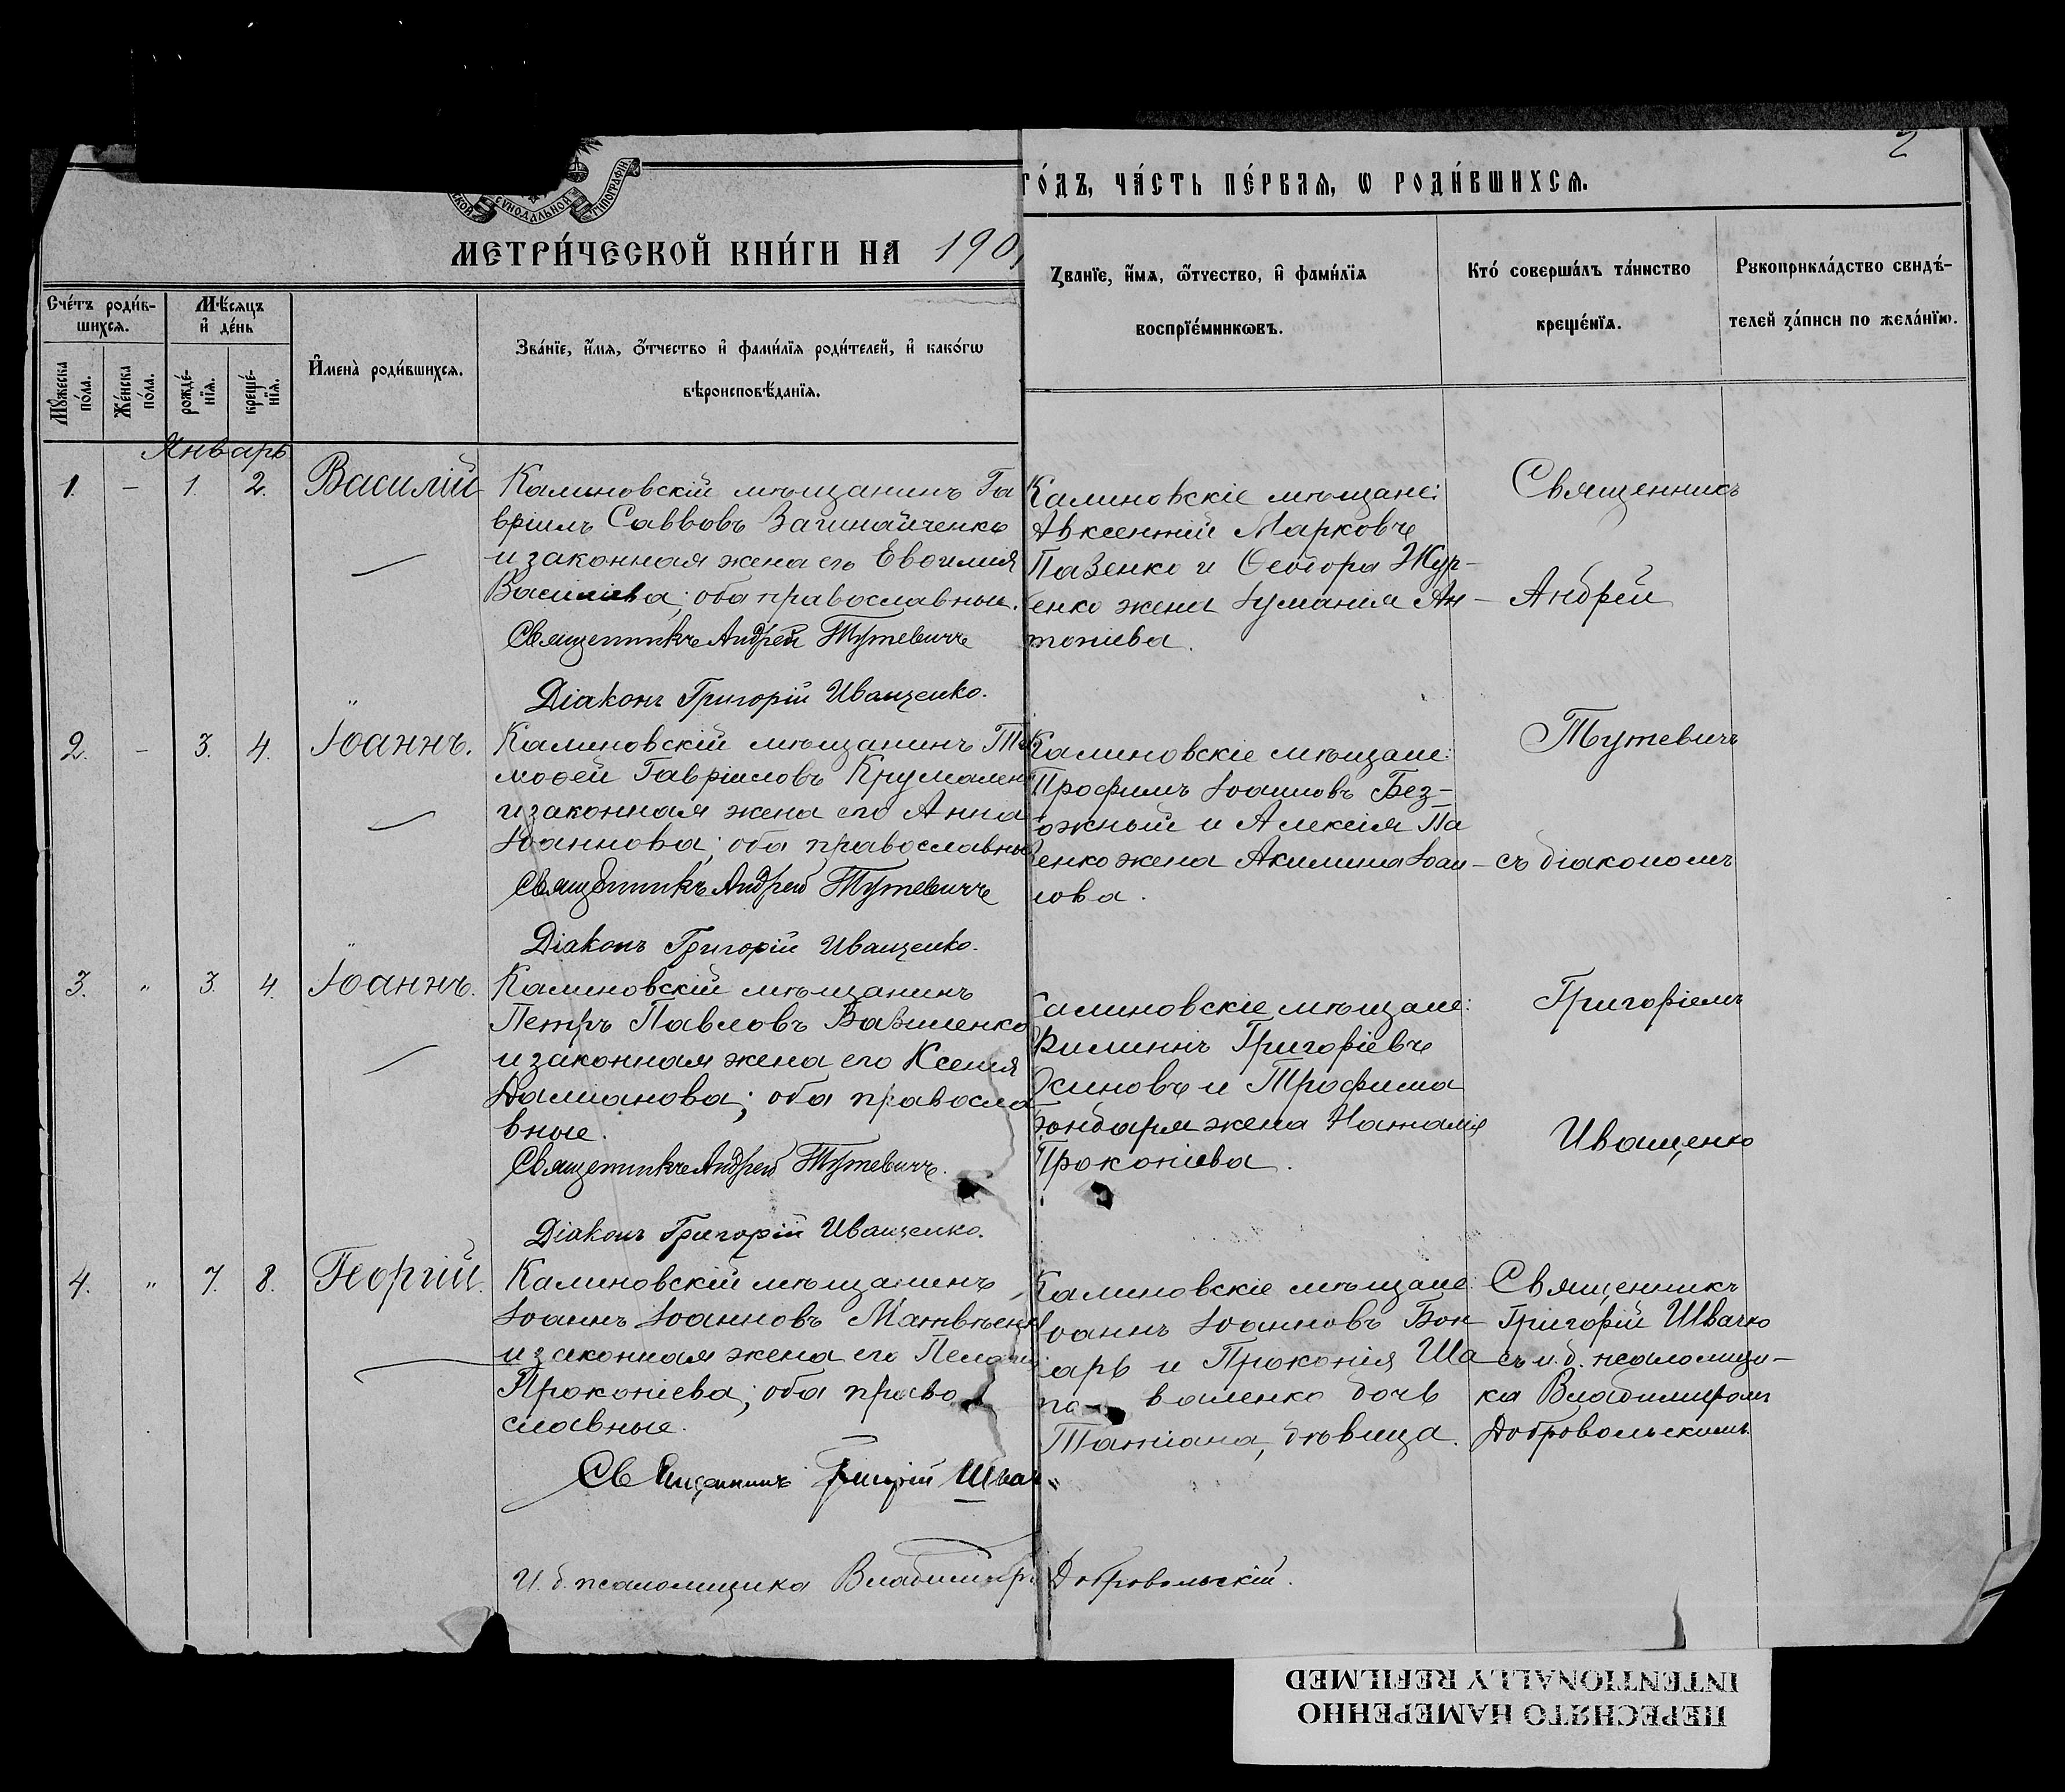 2
СУНОДАЛЬНОЙ ТУПОГРАФІИ
МЕТРИ́ЧЕСКОЙ КНИ́ГИ НА 190
ГО́ДЪ, ЧА́СТЬ ПЕ́РВАЯ, Ѡ РОДИ́ВШИХСЯ.
Сче́тъ роди́в-
шихся.
Мѣ́сяцъ
и҆ де́нь
Му́жеска
по́ла.
Же́нска
по́ла.
рожде́-
нїя.
креще́-
нїя.
И҆мена̀ роди́вшихся.
Зва́нїе, и҆́мя, ѻ҆́тчество и҆ фами́лїя роди́телей, и҆ како́гѡ
вѣроисповѣ́данїя.
Зва́нїе, и҆́мя, ѻ҆́тчество, и҆ фами́лїя
воспрїе́мникѡвъ.
Кто́ соверша́лъ та́инство
креще́нїя.
Рукоприкла́дство свидѣ́-
телей за́писи по жела́нїю.
Январь
1. — 1. 2. Василій
Калиновскій мѣщанинъ Га
вріилъ Саввовъ Загинайченко
и законная жена его Евфимія
Василіева; оба православные.
Священникъ Андрей Тутевичъ
Діаконъ Григорій Иващенко.
Калиновскіе мѣщане:
Авксентій Марковъ
Пазенко и Ѳеодора Жур-
енко жена Іуманія Ан-
тоніева.
Священникъ
Андрей
2. — 3. 4. Іоаннъ.
Калиновскій мѣщанинъ Ти
моѳей Гавріиловъ Крумален
и законная жена его Анна
Іоаннова; оба православные
Священникъ Андрей Тутевичъ
Діаконъ Григорій Иващенко.
Калиновскіе мѣщане:
Трофимъ Іоанновъ Без-
ожный и Алексія Па
зенко жена Акилина Іоан-
нова.
Тутевичъ
съ діакономъ
3. " 3 4. Іоаннъ.
Калиновскій мѣщанинъ
Петръ Павловъ Вазиленко
и законная жена его Ксенія
Даміанова; оба правосла
вные.
Священникъ Андрей Тутевичъ.
Діаконъ Григорій Иващенко.
Калиновскіе мѣщане:
Филиппъ Григоріевъ
Осиновъ и Трофима
Бондаря жена Наталія
Прокопіева.
Григоріемъ
Иващенко
4. " 7. 8. Георгій.
Калиновскій мѣщанинъ
Іоаннъ Іоанновъ Матвѣенк
и законная жена его Пелагія
Прокопіева; оба право
славные.
Священникъ Григорій Швачко
И. д. псаломщика Владиміръ Добровольскій.
Калиновскіе мѣщане:
Іоаннъ Іоанновъ Бон
арь и Прокопія Ша
по- валенко дочь
Татіана, дѣвица.
Священникъ
Григорій Швачко
съ и. д. псаломщи-
ка Владиміромъ
Добровольскимъ.
ПЕРЕСНЯТО НАМЕРЕННО
INTENTIONALLY REFILMED